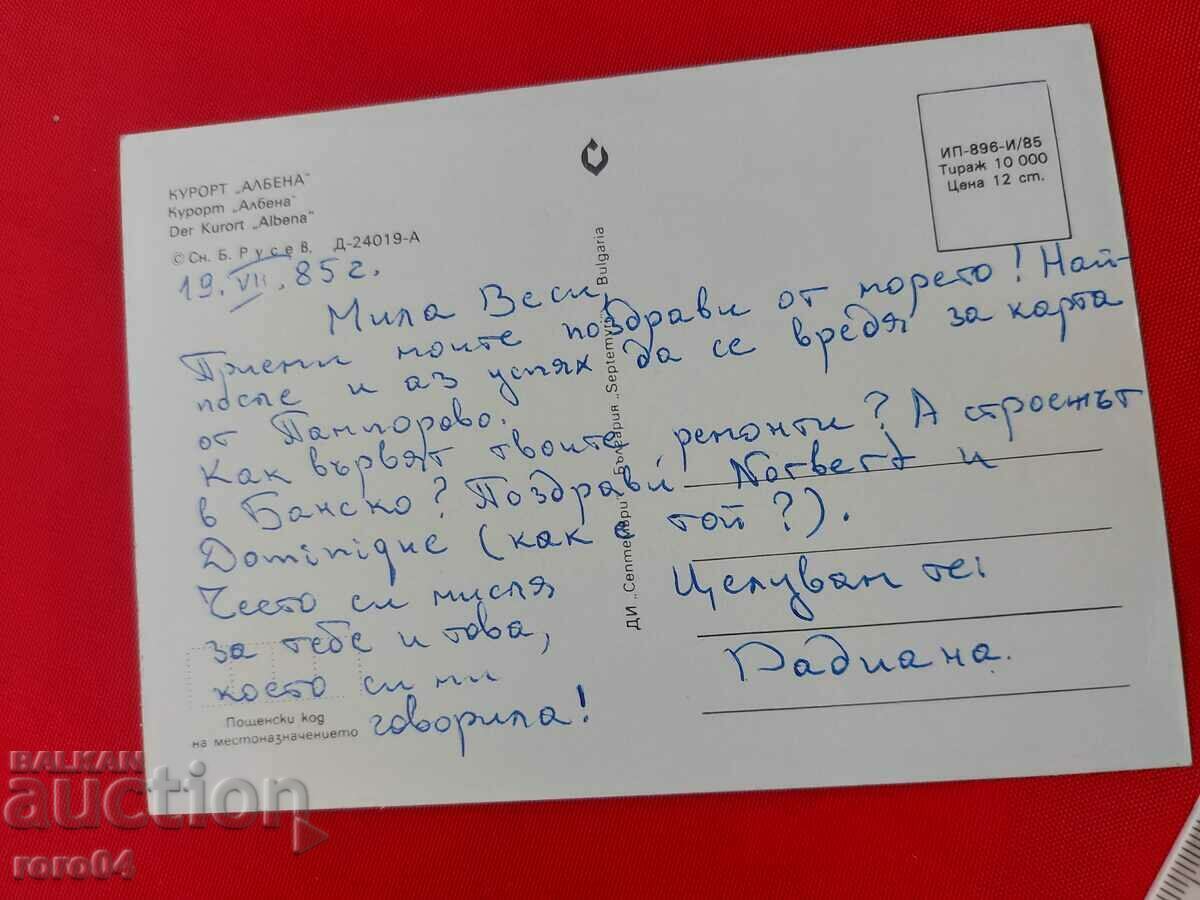 КУРОРТ „АЛБЕНА"
Курорт „Албена"
Der Kurort „Albena"
© Сн. Б. Русев, Д-24019-А
ИП-896-И/85
Тираж 10 000
Цена 12 ст.
19. VII. 85 г.
Мила Веси,
Приеми моите поздрави от морето! Най-
после и аз успях да се вредя за карта
от Пампорово.
Как вървят твоите ремонти? А строежът
в Банско? Поздрави Norbert и
Dominique (как е той?).
Често си мисля
за тебе и това,
което си ми
говорила!
Целувам те:
Радиана.
ДИ „Септември" България „Septemvri" Bulgaria
Пощенски код
на местоназначението
BALKAN
auction
roro04